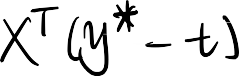 X^T(y^* - t)